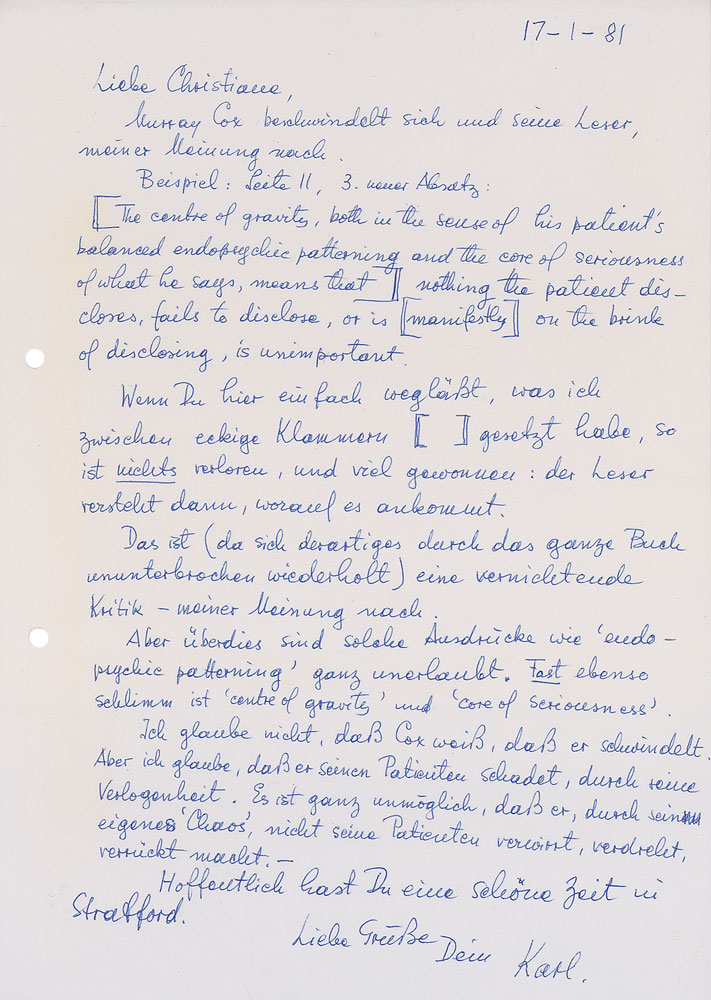 17-1-81
Liebe Christiane,
Murray Cox beschwindelt sich und seine Leser,
meiner Meinung nach.
Beispiel: Seite 11, 3. neuer Absatz:
[The centre of gravity, both in the sense of his patient's
balanced endopsychic patterning and the core of seriousness
of what he says, means that] nothing the patient dis-
closes, fails to disclose, or is [manifestly] on the brink
of disclosing, is unimportant.
Wenn Du hier einfach wegläßt, was ich
zwischen eckige Klammern [ ] gesetzt habe, so
ist nichts verloren, und viel gewonnen: der Leser
versteht dann, worauf es ankommt.
Das ist (da sich derartiges durch das ganze Buch
ununterbrochen wiederholt) eine vernichtende
Kritik – meiner Meinung nach.
Aber überdies sind solche Ausdrücke wie 'endo-
psychic patterning' ganz unerlaubt. Fast ebenso
schlimm ist 'centre of gravity' und 'core of seriousness'.
Ich glaube nicht, daß Cox weiß, daß er schwindelt.
Aber ich glaube, daß er seinen Patienten schadet, durch seine
Verlogenheit. Es ist ganz unmöglich, daß er, durch sein
eigenes 'Chaos', nicht seine Patienten verwirrt, verdreht,
verrückt macht. –
Hoffentlich hast Du eine schöne Zeit in
Stratford.
Liebe Grüße
Dein Karl.